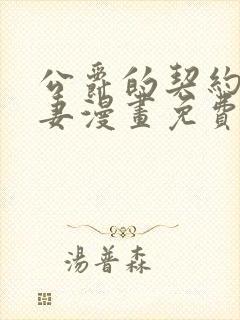 公爵的契約
妻漫畫免費
湯普森